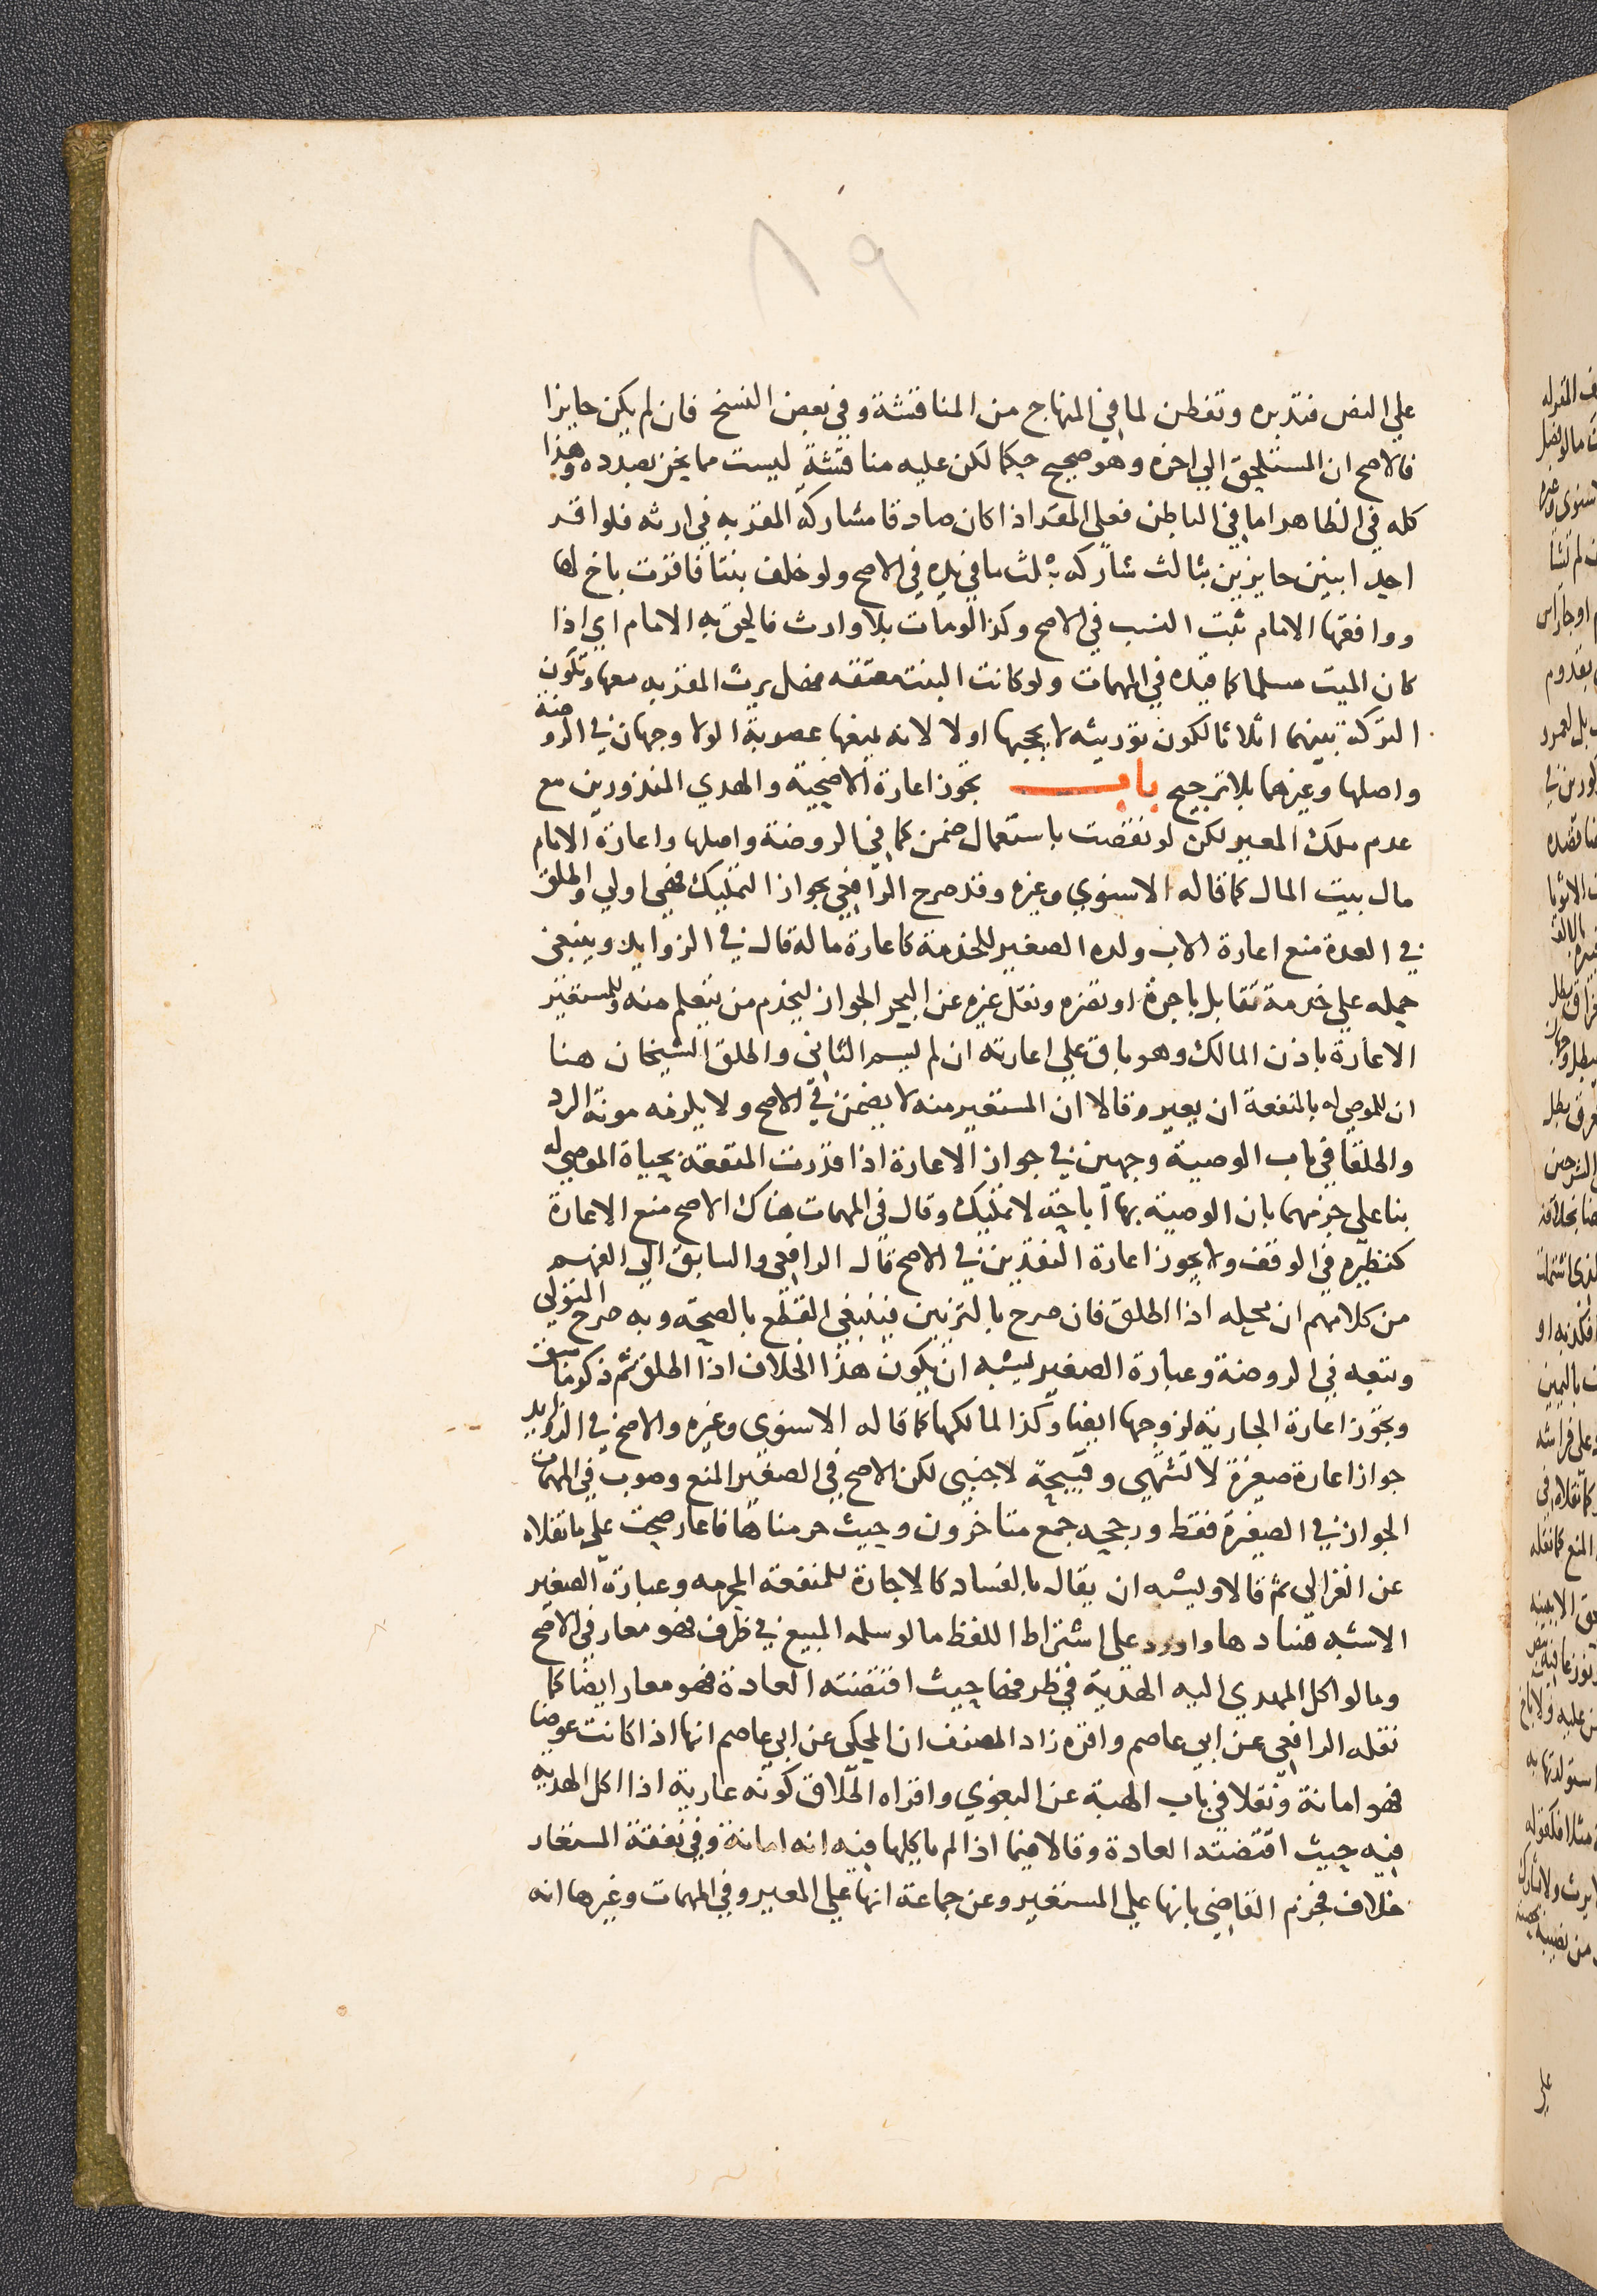 ٨٩
علي النص فتدبره وتفطن لما في المنهاج من المناقشة وفي بعض النسخ فان لم يكن حايزا
فالاصح ان المستلحق الي اخره وهو صحيح حكما لكن عليه مناقشة ليست مما نحن بصدده وهذا
كله في الظاهر اما في الباطن فعلي المقر اذا كان صادقا مشاركة المقر به في ارثه فلو اقر
احد ابنين حايزين بثالث شاركه بثلث ما في يده في الاصح ولو خلف بنتا فاقرت باخ لها
ووافقها الامام ثبت النسب في الاصح وكذا لو مات بلا وارث فالحق به الامام اي اذا
كان الميت مسلما كما قيده في المهمات ولو كانت البنت معتقه فهل يرث المقر به معها وتكون
التركة بينهما اثلاثا لكون توريثه لا يحجبها اولا لانه يمنعها عصوبة الولا وجهان في الروضة
واصلها وغيرهما بلا ترجيح باب تجوز اعارة الاضحية والهدي المنذورين مع
عدم ملك المعير لكن لو نقصت باستعمال ضمن كما في الروضة واصلها واعارة الامام
مال بيت المال كما قاله الاسنوي وغيره وقد صرح الرافعي بجواز التمليك فهي اولي واطلق
في العدة منع اعارة الاب ولده الصغير للخدمة كاعارة ماله قال في الزوايد وينبغي
حمله علي خدمة تقابل باجرة او تضره ونقل غيره عن البحر الجواز ليخدم من يتعلم منه وللمستعير
الاعارة باذن المالك وهو باق علي اعارته ان لم يسم الثاني واطلق الشيخان هنا
ان للموصي له بالمنفعة ان يعير وقالا ان المستعير منه لا يضمن في الاصح ولا يلزمه مونة الرد
واطلقا في باب الوصية وجهين في جواز الاعارة اذا قدرت المنفعة بحياة الموصي له
بنا علي جزمهما بان الوصية بها اباحة لا تمليك وقال في المهمات هناك الاصح منع الاعارة
كنظيره في الوقف ولا يجوز اعارة النقدين في الاصح قال الرافعي والسابق الي الفهم
من كلامهم ان محله اذا اطلق فان صرح بالتزيين فينبغي القطع بالصحة وبه صرح المتولي
وتبعه في الروضة وعبارة الصغير يشبه ان يكون هذا الخلاف اذا اطلق ثم ذكر ما سبق
وتجوز اعارة الجارية لزوجها ايضا وكذا لمالكها كما قاله الاسنوي وغيره والاصح في الزوايد
جواز اعارة صغيرة لا تشتهي وقبيحة لاجنبي لكن الاصح في الصغير المنع وصوب في المهمات
الجواز في الصغيرة فقط ورجحه جمع متاخرون وحيث حرمناها فاعار صحت علي ما نقلاه
عن الغزالي ثم قالا ويشبه ان يقال بالفساد كالاجارة للمنفعة المحرمه وعبارة الصغير
الاشبه فسادها واورد علي اشتراط اللفظ ما لو سلم المبيع في ظرف فهو معار في الاصح
وما لو اكل المهدي اليه الهدية في ظرفها حيث اقتضته العادة فهو معار ايضا كما
نقله الرافعي عن ابي عاصم واقره زاد المصنف ان المحكي عن ابي عاصم انها اذا كانت عوضا
فهو امانة ونقلا في باب الهبة عن البغوي واقراه اطلاق كونه عارية اذا اكل الهدية
فيه حيث اقتضته العادة وقالا فيما اذا لم ياكلها فيه انه امانة وفي نفقة المستعار
خلاف فجزم القاضي بانها علي المستعير وعن جماعة انها علي المعير وفي المهمات وغيرها انه